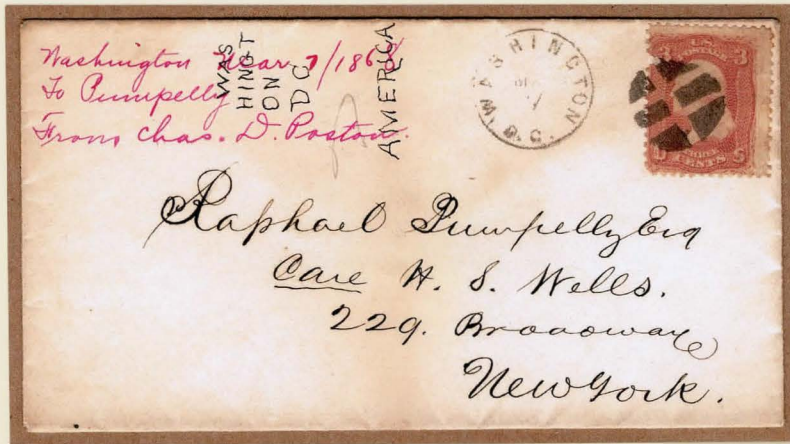 Washington Mar 7/1868
To Pumpelly
From Chas. D. Poston.
WAS
HINGT
ON
DC
AMERICA
WASHINGTON
D.C.
U.S.
POSTAGE
3 3
CENTS
Raphael Pumpelly Esq
Care H. S. Wells.
229. Broadway
New York.